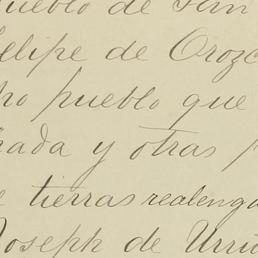 pueblo de San
Felipe de Orozc
ho pueblo que
hada y otras p
e tierras realenga
Joseph de Urru